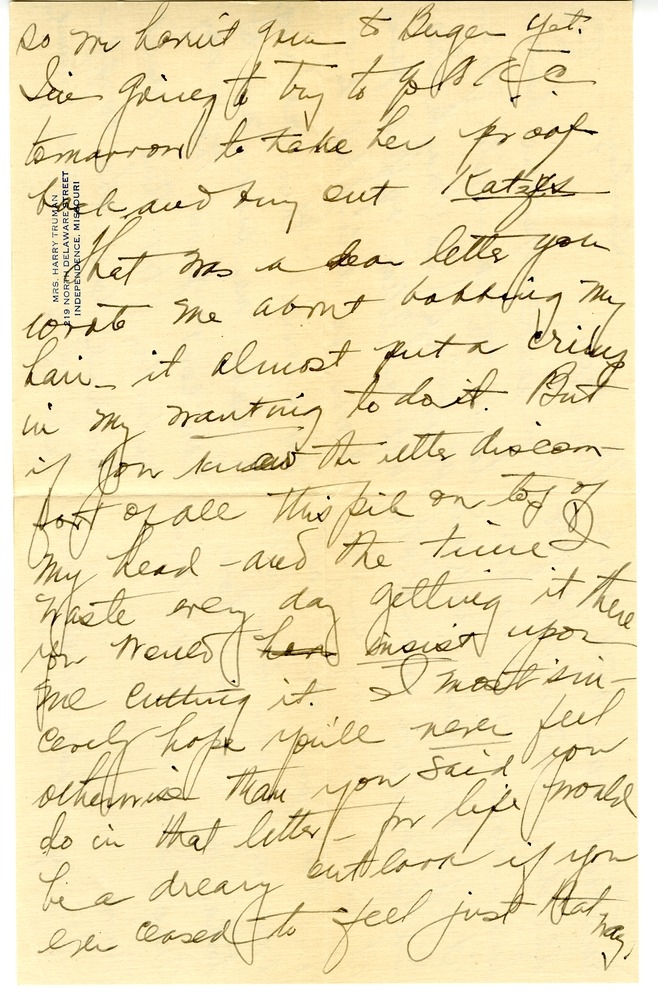 so we haven't gone to Burger yet.
I'm going to try to go to K.C.
tomorrow to take her proof
back and try out Katz's
MRS. HARRY TRUMAN
219 NORTH DELAWARE STREET
INDEPENDENCE, MISSOURI
That was a dear letter you
wrote me about bobbing my
hair – it almost put a crimp
in my wanting to do it. But
if you knew the utter discom-
fort of all this pile on top of
my head – and the time I
waste every day getting it there
you would insist upon
me cutting it. I most sin-
cerely hope you'll never feel
otherwise than you said you
do in that letter – for life would
be a dreary outlook if you
ever ceased to feel just that
way.